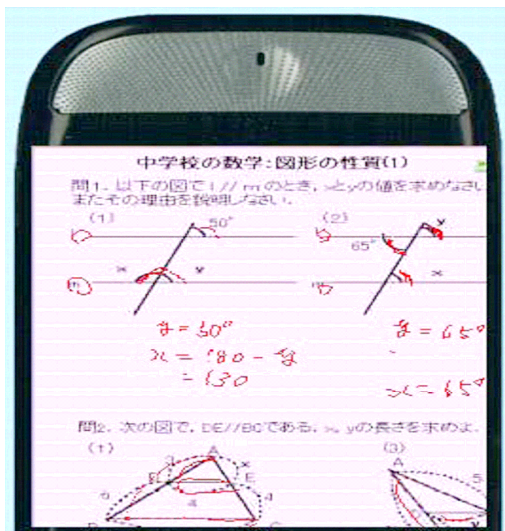 中学校の数学:図形の性質(1)
問1. 以下の図で l // m のとき, xとyの値を求めなさい
またその理由を説明しなさい.
(1)
(2)
50°
y
65°
x
y
x
m
y = 50°
x = 180 - y
= 130
y = 65°
x = 65°
問2. 次の図で, DE//BCである. x, yの長さを求めよ.
(1)
(3)
A
A
3
x
E
5
6
4
4